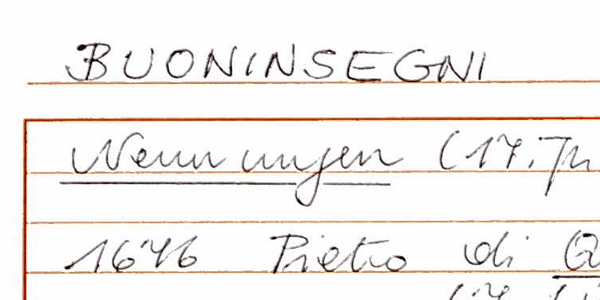 BUONINSEGNI
Nennungen (17. Jh
1646 Pietro di